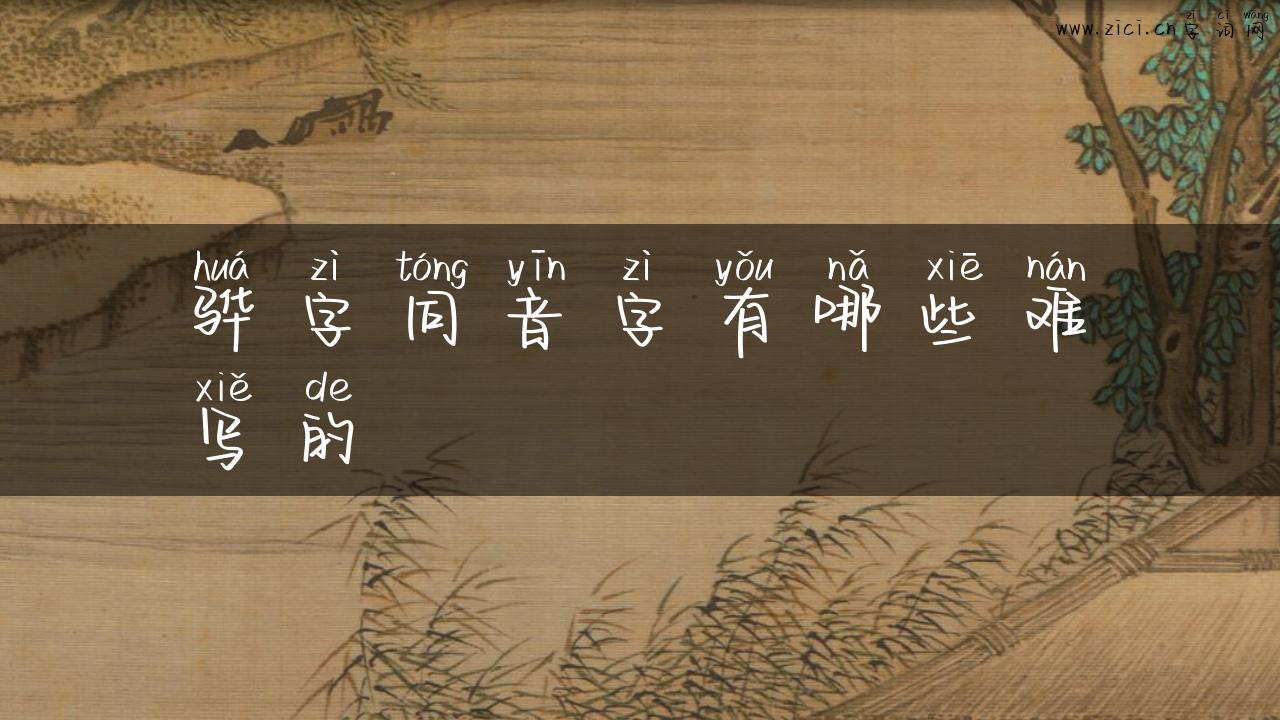 zì cí wǎng
www.zici.cn字词网
huá zì tóng yīn zì yǒu nǎ xiē nán
骅字同音字有哪些难
xiě de
写的